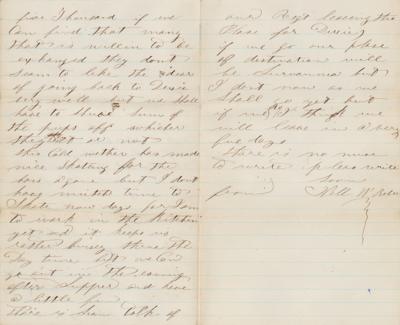 five Thousand if we
Can find that many
that is willen to be
exchanged they dont
seam to like the idear
of going back to Dixie
very well but we Shall
have to Shove Sum of
the pups off whether
they like it or not
the Cold wether has made
nice Skating for the
boys again but I dont
have much time to
Skate now days for I am
to work in the Kitchen
yet and it keeps us
rather busey threw the
Day time but we Can
go out in the eavning
after Supper and have
a little fun
there is Sum talk of
our Regt leaveing this
Place for Dixie
if we go our place
of destination will
be Survanna but
I dont now as we
Shall go yet but
if we do we
will leave in a very
few days
there is no more
to write please write
Soon
from Will W